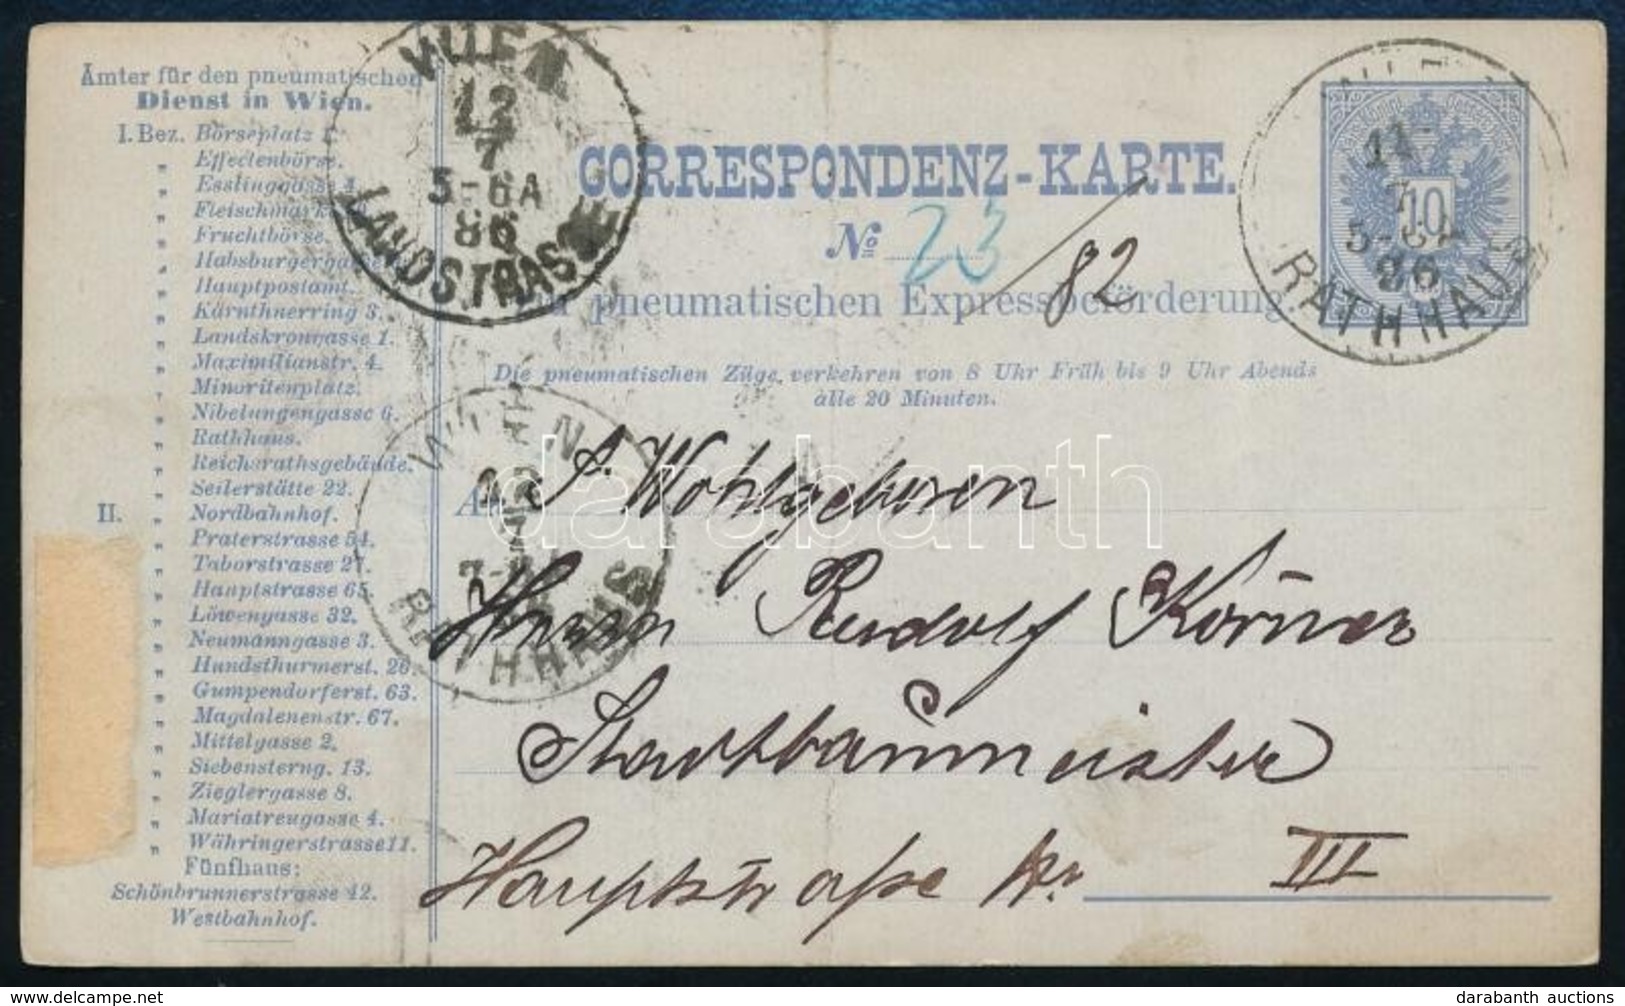 Ämter für den pneumatischen
Dienst in Wien.
I. Bez. Börseplatz 1.
" Effectenbörse.
" Esslinggasse 4.
" Fleischmarkt
" Fruchtbörse.
" Habsburgergasse
" Hauptpostamt.
" Kärnthnerring 3.
" Landskrongasse 1.
" Maximilianstr. 4.
" Minoritenplatz.
" Nibelungengasse 6.
" Rathhaus.
" Reichsrathsgebäude.
" Seilerstätte 22.
II. " Nordbahnhof.
" Praterstrasse 54.
" Taborstrasse 27.
" Hauptstrasse 65.
" Löwengasse 32.
" Neumanngasse 3.
" Hundsthurmerst. 26.
" Gumpendorferst. 63.
" Magdalenenstr. 67.
" Mittelgasse 2.
" Siebensterng. 13.
" Zieglergasse 8.
" Mariatreugasse 4.
" Währingerstrasse 11.
Fünfhaus:
Schönbrunnerstrasse 42.
Westbahnhof.
WIEN
12
7
5-6A
86
LANDSTRASSE
CORRESPONDENZ-KARTE.
No 23 / 82
pneumatischen Expressbeförderung
Die pneumatischen Züge verkehren von 8 Uhr Früh bis 9 Uhr Abends
alle 20 Minuten.
10
11
7
86
RATHHAUS
WIEN
12
7
RATHHAUS
An Sr Wohlgeboren
Herrn Rudolf Körner
Stadtbaumeister
Hauptstraße Nr III
darabanth
darabanth auctions